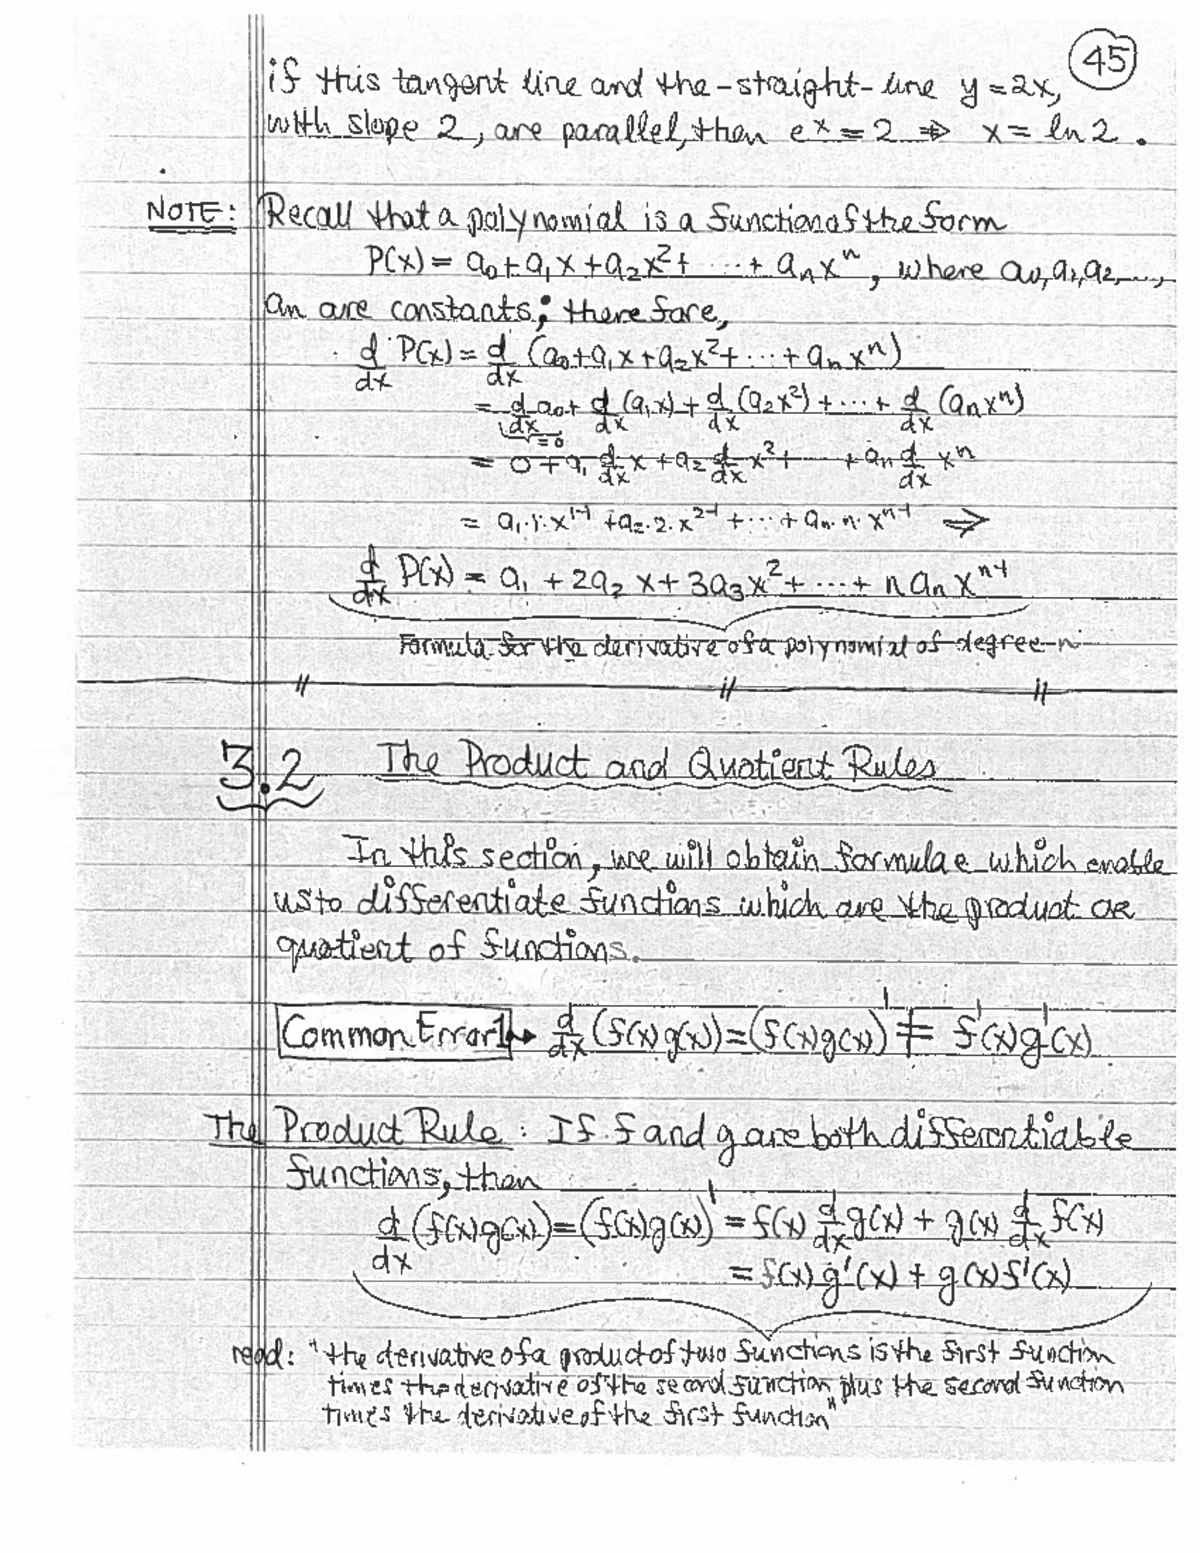 45
if this tangent line and the straight-line y = 2x,
with slope 2, are parallel, then e^x = 2 ⇒ x = ln 2.
NOTE: Recall that a polynomial is a function of the form
P(x) = a₀ + a₁x + a₂x² + ⋯ + aₙxⁿ, where a₀, a₁, a₂, ...,
aₙ are constants; therefore,
d/dx P(x) = d/dx (a₀ + a₁x + a₂x² + ⋯ + aₙxⁿ)
= d/dx a₀ + d/dx (a₁x) + d/dx (a₂x²) + ⋯ + d/dx (aₙxⁿ)
= 0
= 0 + a₁ d/dx x + a₂ d/dx x² + ⋯ + aₙ d/dx xⁿ
= a₁·1·x^(1-1) + a₂·2·x^(2-1) + ⋯ + aₙ·n·x^(n-1) ⇒
d/dx P(x) = a₁ + 2a₂x + 3a₃x² + ⋯ + n aₙ x^(n-1)
Formula for the derivative of a polynomial of degree n
3.2 The Product and Quotient Rules
In this section, we will obtain formulae which enable
us to differentiate functions which are the product or
quotient of functions.
Common Error 1 → d/dx (f(x)g(x)) = (f(x)g(x))' ≠ f'(x)g'(x)
The Product Rule: If f and g are both differentiable
functions, then
d/dx (f(x)g(x)) = (f(x)g(x))' = f(x) d/dx g(x) + g(x) d/dx f(x)
= f(x)g'(x) + g(x)f'(x)
read: "the derivative of a product of two functions is the first function
times the derivative of the second function plus the second function
times the derivative of the first function"